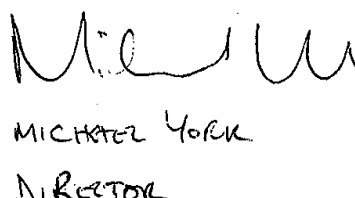 MICHAEL YORK
DIRECTOR